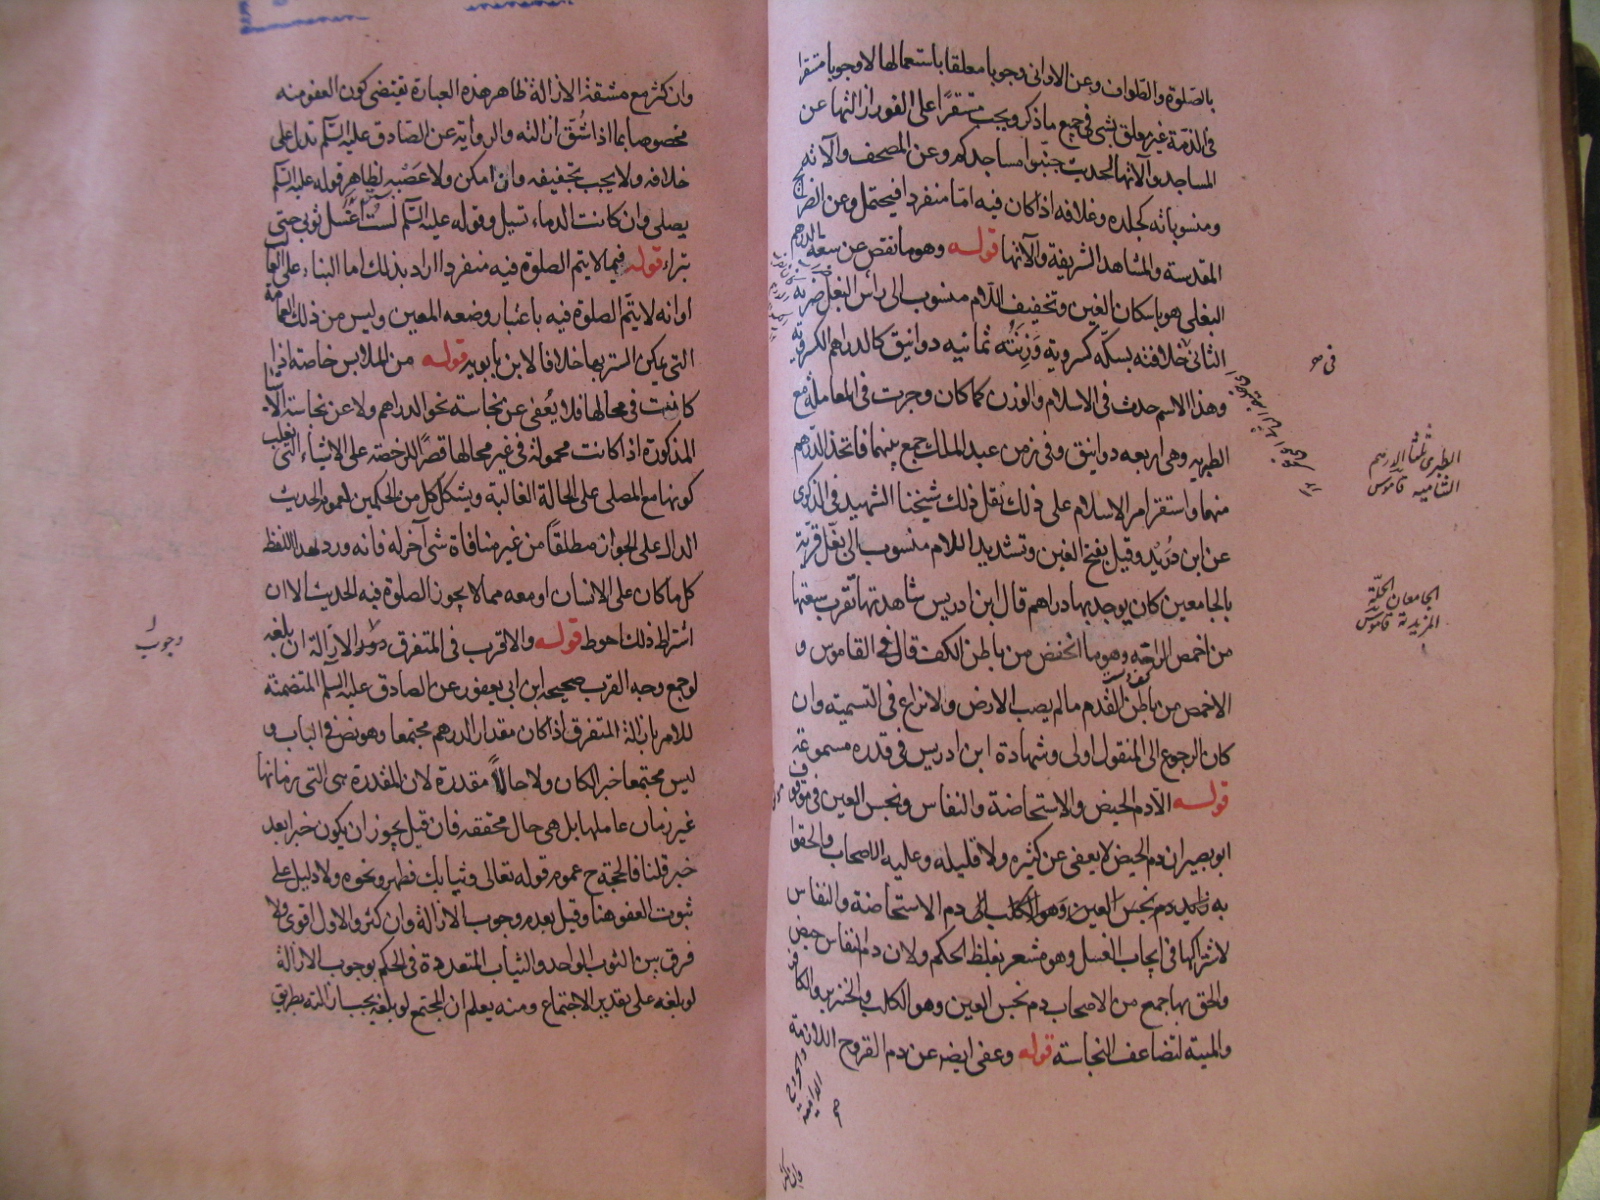 بالصلوة والطواف وعن الاوانى وجوبا معلقا باستعمالها لا وجوبا مستقرا
فى الذمة غير معلق بشى فى جميع ما ذكر ويجب مستقرا على الفور ازالتها عن
المساجد والآتها الحديث جنبوا مساجدكم وعن المصحف وآلاته
ومنسوباته كجلده وغلافه اذا كان فيه اما منفردا فيحتمل وعن الضرايح
المقدسة والمشاهد الشريفة والآتها قوله وهو ما نقص عن سعة الدرهم
البغلى هو باسكان الغين وتخفيف اللام منسوب الى رأس البغل ضربه
الثانى خلافته بسكه كسروية وزنته ثمانيه دوانيق كالدراهم الكسروية
وهذا الاسم حدث فى الاسلام والوزن كما كان وجرت فى المعاملة مع
الطبريه وهى اربعه دوانيق وفى زمن عبد الملك جمع بينهما فاتخذ الدرهم
منهما واستقر امر الاسلام على ذلك نقل ذلك شيخنا الشهيد فى الذكرى
عن ابن دريد وقيل بفتح الغين وتشديد اللام منسوب الى بغل قرية
بالجامعين كان يوجد بها دراهم قال ابن ادريس شاهدتها تقرب سعتها
من اخمص الراحه وهو ما انخفض من باطن الكف قال فى القاموس و
الاخمص من باطن القدم ما لم يصب الارض ولا نزاع فى التسميه وان
كان الرجوع الى المنقول اولى وشهادة ابن ادريس فى قدره مسموعة
قوله الا دم الحيض والاستحاضة والنفاس ونجس العين فى موقوف
ابو بصير ان دم الحيض لا يعفى عن كثيره ولا قليله وعليه الاصحاب والحقوا
به دم نجس العين وهو الكلب الى دم الاستحاضة والنفاس
لاشتراكها فى ايجاب الغسل وهو مشعر بغلظ الحكم ولان دم النفاس حيض
والحق بها جمع من الاصحاب دم نجس العين وهو الكلب والخنزير والكافر
والميتة لتضاعف النجاسة قوله وعفى ايضه عن دم القروح اللازمة
والجروح الدامية صح
فى صو
الطبرى ثلثا الدرهم
الشاميه قاموس
الجامعان الحلّة
المزيديّة قاموس
وان كثر
وان كثر مع مشقة الازالة ظاهر هذه العبارة تقتضى كون العفو منه
مخصوصا بما اذا شق ازالته والروايته عن الصادق عليه السلم تدل على
خلافه ولا يجب تخفيفه وان امكن ولا عصبه لظاهر قوله عليه السلم
يصلى وان كانت الدماء تسيل وقوله عليه السلم لست اغسل ثوبى حتى
تبراء قوله فيما لا يتم الصلوة فيه منفردا اراد بذلك اما البناء على الغالب
او انه لا يتم الصلوة فيه باعتبار وضعه المعين وليس من ذلك العمامة
التى يمكن الستر بها خلافا لابن بابويه قوله من الملابس خاصة اذا
كانت فى محالها فلا يعفى عن نجاسة نحو الدراهم ولا عن نجاسة الاشياء
المذكورة اذا كانت محمولة فى غير محالها قصرا للرخصة على الاشياء التى تغلب
كونها مع المصلى على الحالة الغالبة ويشكل كل من الحكمين لعموم الحديث
الدال على الجواز مطلقا من غير منافاة شى آخر له فانه ورد لهذا اللفظ
كل ما كان على الانسان او معه مما لا يجوز الصلوة فيه الحديث الا ان
اشتراط ذلك احوط قوله والاقرب فى المتفرق وجوب الازالة ان بلغه
لو جمع وجه القرب صحيحه ابن ابى يعفور عن الصادق عليه السلم المتضمنة
للامر بازالة المتفرق اذا كان مقدار الدرهم مجتمعا وهو نص فى الباب و
ليس مجتمعا خبر الكان ولا حالاً مقدرة لان المقدرة هى التى زمانها
غير زمان عاملها بل هى حال محققه فان قيل يجوز ان يكون خبرا بعد
خبر قلنا فالحجة ح عموم قوله تعالى وثيابك فطهر ونحوه ولا دليل على
ثبوت العفو هنا وقيل بعدم وجوب الازالة وان كثر والاول اقوى ولا
فرق بين الثوب الواحد والثياب المتعددة فى الحكم بوجوب الازالة
لو بلغه على تقدير الاجتماع ومنه يعلم ان المجتمع لو بلغه يجب ازالته بطريق
وجوب